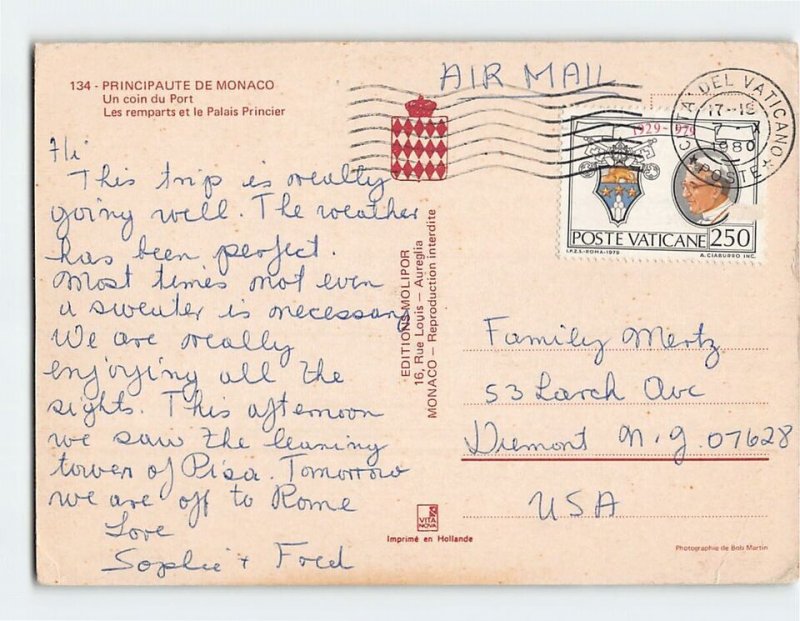 134 - PRINCIPAUTE DE MONACO
Un coin du Port
Les remparts et le Palais Princier
AIR MAIL
CITTA' DEL VATICANO
17-18
7 X
1980
POSTE
1929-1979
POSTE VATICANE 250
I.P.Z.S.-ROMA-1979 A. CIABURRO INC.
Hi
This trip is really
going well. The weather
has been perfect.
Most times not even
a sweater is necessary
We are really
enjoying all the
sights. This afternoon
we saw the leaning
tower of Pisa. Tomorrow
we are off to Rome
Love
Sophie + Fred
EDITIONS MOLIPOR
16, Rue Louis - Aureglia
MONACO - Reproduction interdite
Family Mertz
53 Larch Ave
Dumont N.J. 07628
USA
VITA NOVA
Imprimé en Hollande
Photographie de Bob Martin